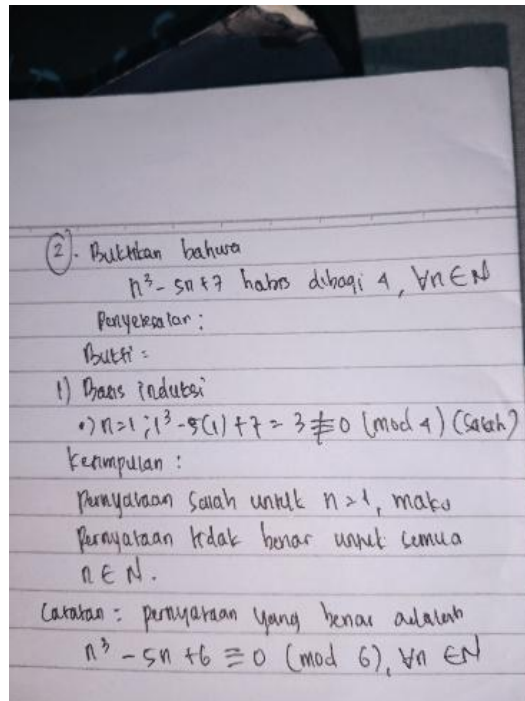 2. Buktikan bahwa
n³ - 5n + 7 habis dibagi 4, ∀n ∈ N
Penyelesaian :
Bukti =
1) Basis induksi
•) n=1 ; 1³ - 5(1) + 7 = 3 ≢ 0 (mod 4) (Salah)
Kesimpulan :
Pernyataan salah untuk n=1, maka
Pernyataan tidak benar untuk semua
n ∈ N.
Catatan = pernyataan yang benar adalah
n³ - 5n + 6 ≡ 0 (mod 6), ∀n ∈ N